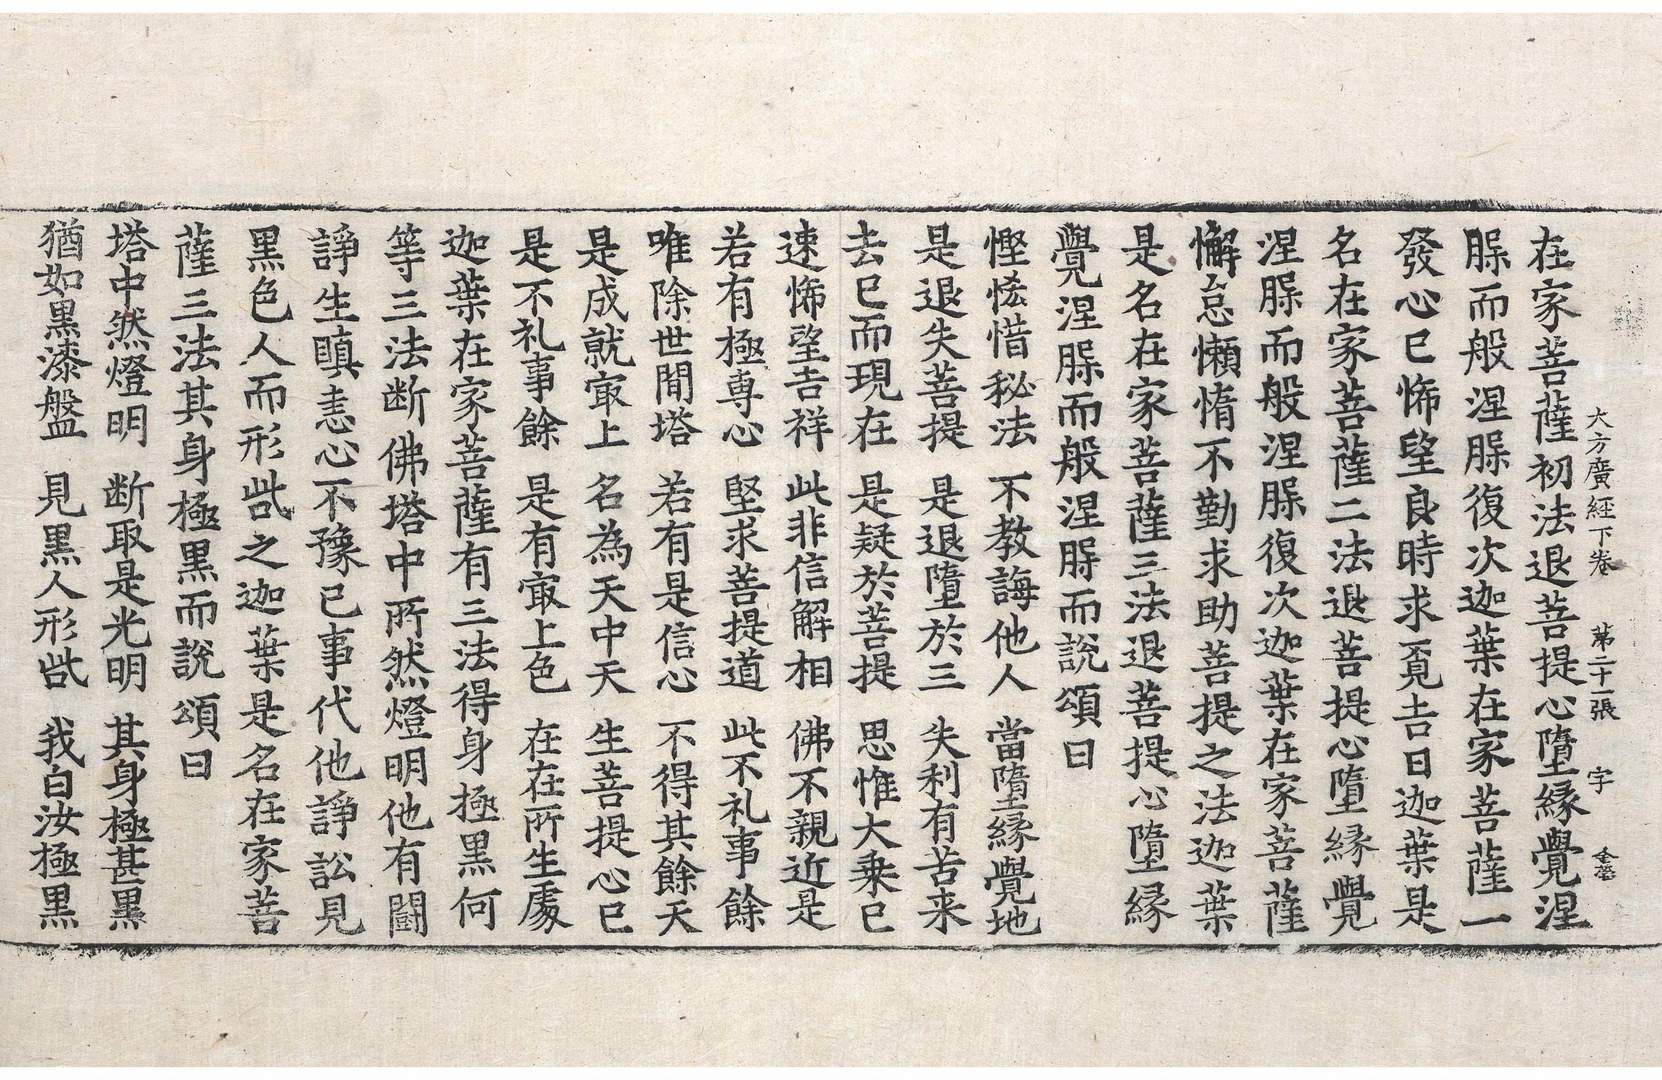 大方廣經下卷 第二十一張 字
在家菩薩初法退菩提心墮緣覺涅
脲而般涅脲復次迦葉在家菩薩一
發心已悕望良時求覓吉日迦葉是
名在家菩薩二法退菩提心墮緣覺
涅脲而般涅脲復次迦葉在家菩薩
懈怠懶惰不勤求助菩提之法迦葉
是名在家菩薩三法退菩提心墮緣
覺涅脲而般涅脲而說頌曰
慳悋惜秘法 不教誨他人 當墮緣覺地
是退失菩提 是退墮於三 失利有苦来
去已而現在 是疑於菩提 思惟大乗已
速悕望吉祥 此非信解相 佛不親近是
若有極專心 堅求菩提道 此不礼事餘
唯除世間塔 若有是信心 不得其餘天
是成就㝡上 名為天中天 生菩提心已
是不礼事餘 是有㝡上色 在在所生處
迦葉在家菩薩有三法得身極黒何
等三法断佛塔中所然燈明他有闘
諍生瞋恚心不豫已事代他諍訟見
黒色人而形呰之迦葉是名在家菩
薩三法其身極黒而說頌曰
塔中然燈明 断取是光明 其身極甚黒
猶如黒漆盤 見黒人形呰 我白汝極黒